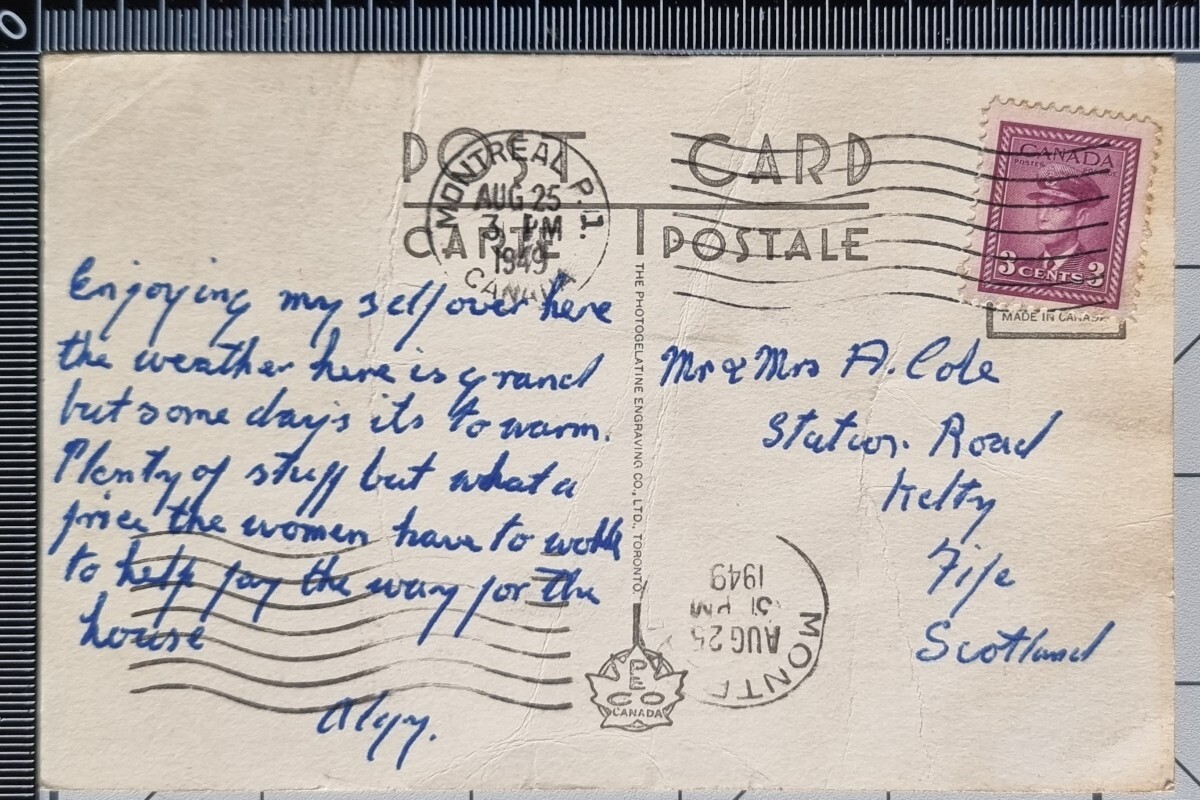 0
POST CARD
CARTE POSTALE
MONTREAL P.Q.
AUG 25
3 PM
1949
CANADA
CANADA
POSTES POSTAGE
3 CENTS 3
MADE IN CANADA
Enjoying my self over here
the weather here is grand
but some days its to warm.
Plenty of stuff but what a
price the women have to work
to help pay the way for the
house
Algy.
THE PHOTOGELATINE ENGRAVING CO., LTD., TORONTO
Mr & Mrs A. Cole
Station Road
Kelty
Fife
Scotland
MONT
AUG 25
PM
1949
PECO
CANADA